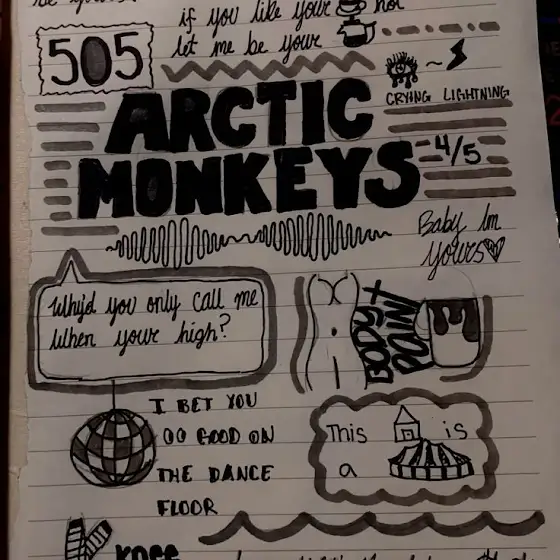 if you like your hot
let me be your
505
CRYING LIGHTNING
ARCTIC
MONKEYS
4/5
Baby Im
yours
Whyd you only call me
When your high?
BODY
PAINT
I BET YOU
OO GOOD ON
THE DANCE
FLOOR
This is
a
KNEE